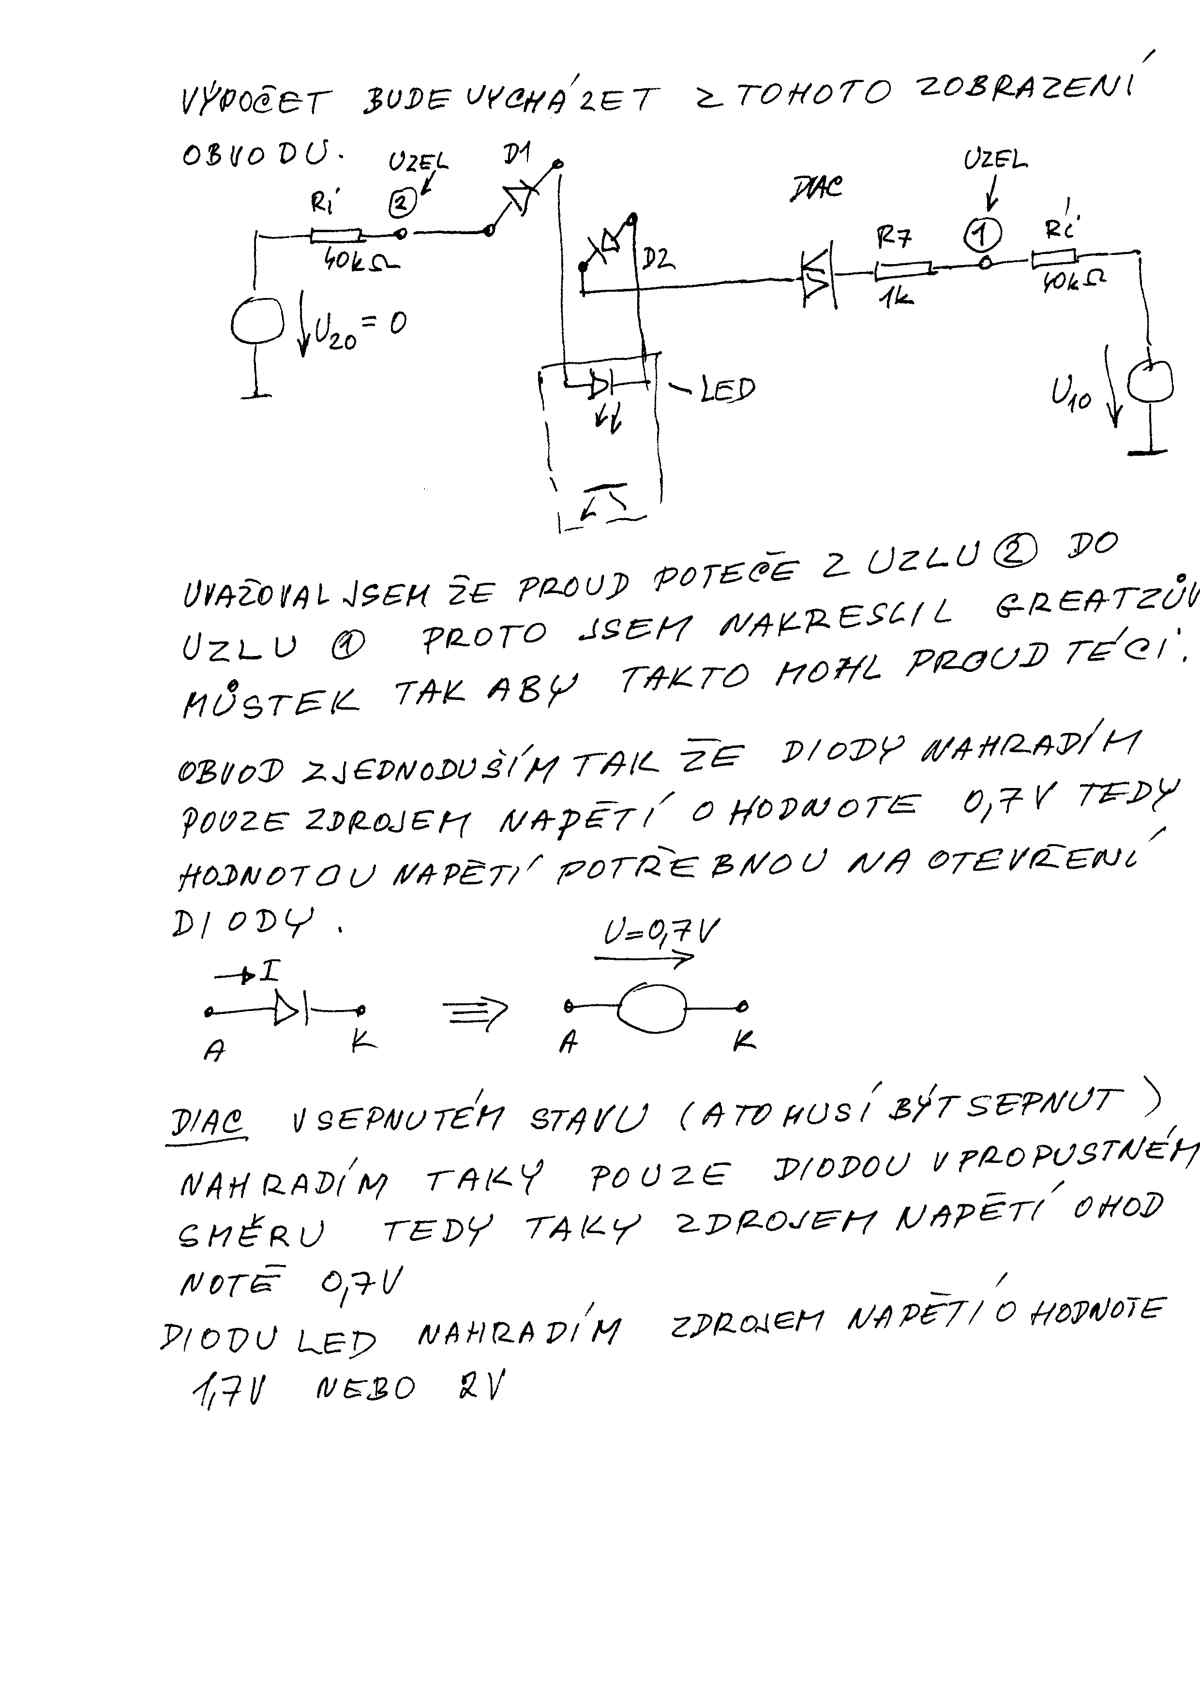 VÝPOČET BUDE VYCHÁZET Z TOHOTO ZOBRAZENÍ
OBVODU.
UZEL
D1
UZEL
DIAC
Ri
2
40kΩ
D2
R7
1k
1
Ri
40kΩ
U20 = 0
U10
LED
UVAŽOVAL JSEM ŽE PROUD POTEČE Z UZLU 2 DO
UZLU 1 PROTO JSEM NAKRESLIL GREATZŮV
MŮSTEK TAK ABY TAKTO MOHL PROUD TÉCI.
OBVOD ZJEDNODUŠÍM TAK ŽE DIODY NAHRADÍM
POUZE ZDROJEM NAPĚTÍ O HODNOTE 0,7V TEDY
HODNOTOU NAPĚTÍ POTŘEBNOU NA OTEVŘENÍ
DIODY.
U=0,7V
I
A K A K
DIAC V SEPNUTÉM STAVU (A TO MUSÍ BÝT SEPNUT)
NAHRADÍM TAKY POUZE DIODOU V PROPUSTNÉM
SMĚRU TEDY TAKY ZDROJEM NAPĚTÍ O HOD
NOTĚ 0,7V
DIODU LED NAHRADÍM ZDROJEM NAPĚTÍ O HODNOTE
1,7V NEBO 2V